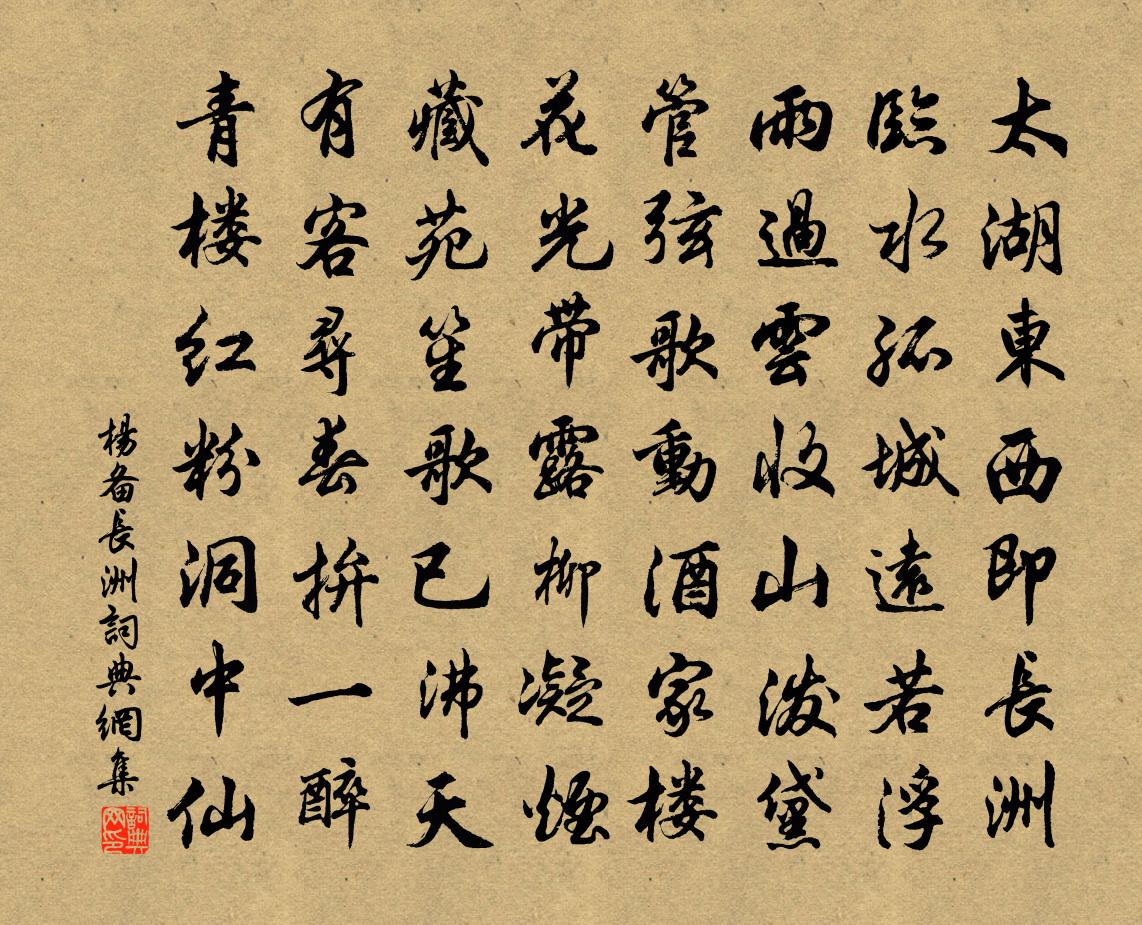 太湖東西即長洲
臨水孤城遠若浮
雨過雲收山泼黛
管弦歌動酒家楼
花光带露柳凝煙
藏苑笙歌已沸天
有客尋春拚一醉
青楼红粉洞中仙
楊备長洲詞典網集
詞典網印